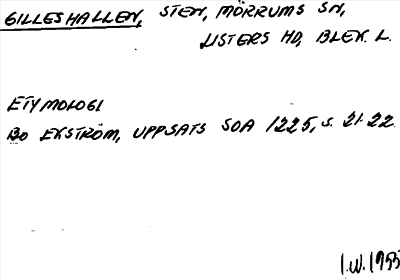 GILLESHALLEN, STEN, MÖRRUMS SN,
LISTERS HD, BLEK. L.
ETYMOLOGI
BO EKSTRÖM, UPPSATS SOA 1225, S. 21-22.
I.W. 1955